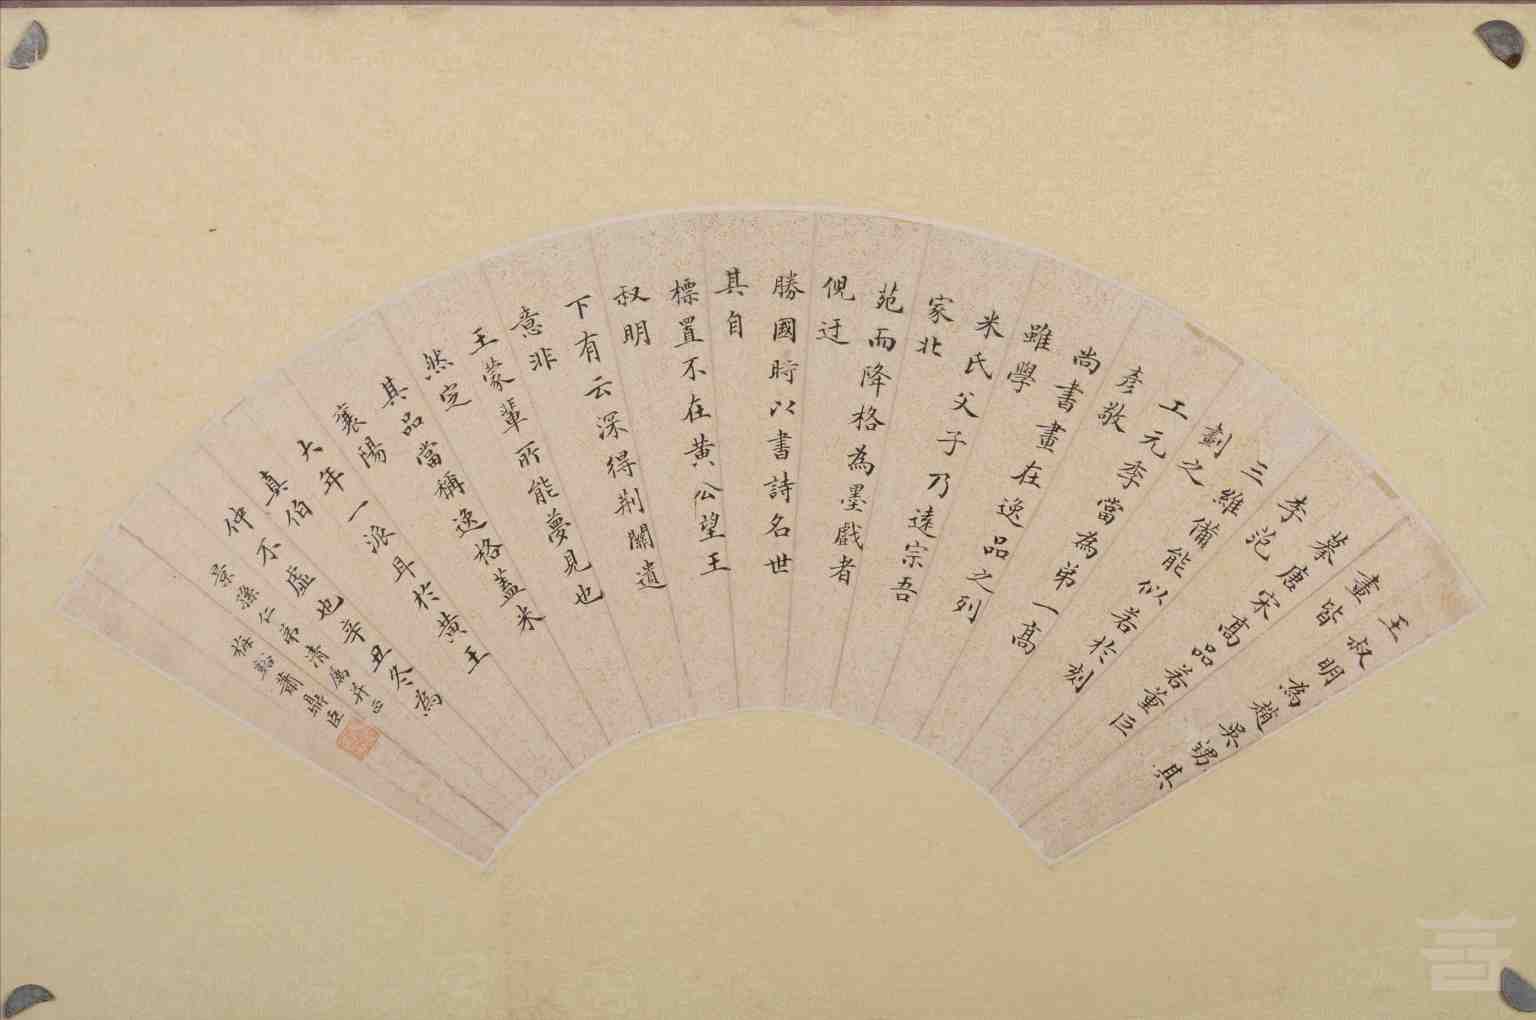 王叔明為趙吳甥其
畫皆
摹唐宋高品若董巨
李范
三維備能似若於刻
劃之
工元季當為第一高
彥敬
尚書畫在逸品之列
雖學
米氏父子乃遠宗吾
家北
苑而降格為墨戲者
倪迂
勝國時以書詩名世
其自
標置不在黃公望王
叔明
下有云深得荆關遺
意非
王蒙輩所能夢見也
然定
其品當稱逸格蓋米
襄陽
大年一派耳於黃王
真伯
仲不虛也辛丑冬為
景孫仁弟清屬并正
梅谿蕭鼎臣